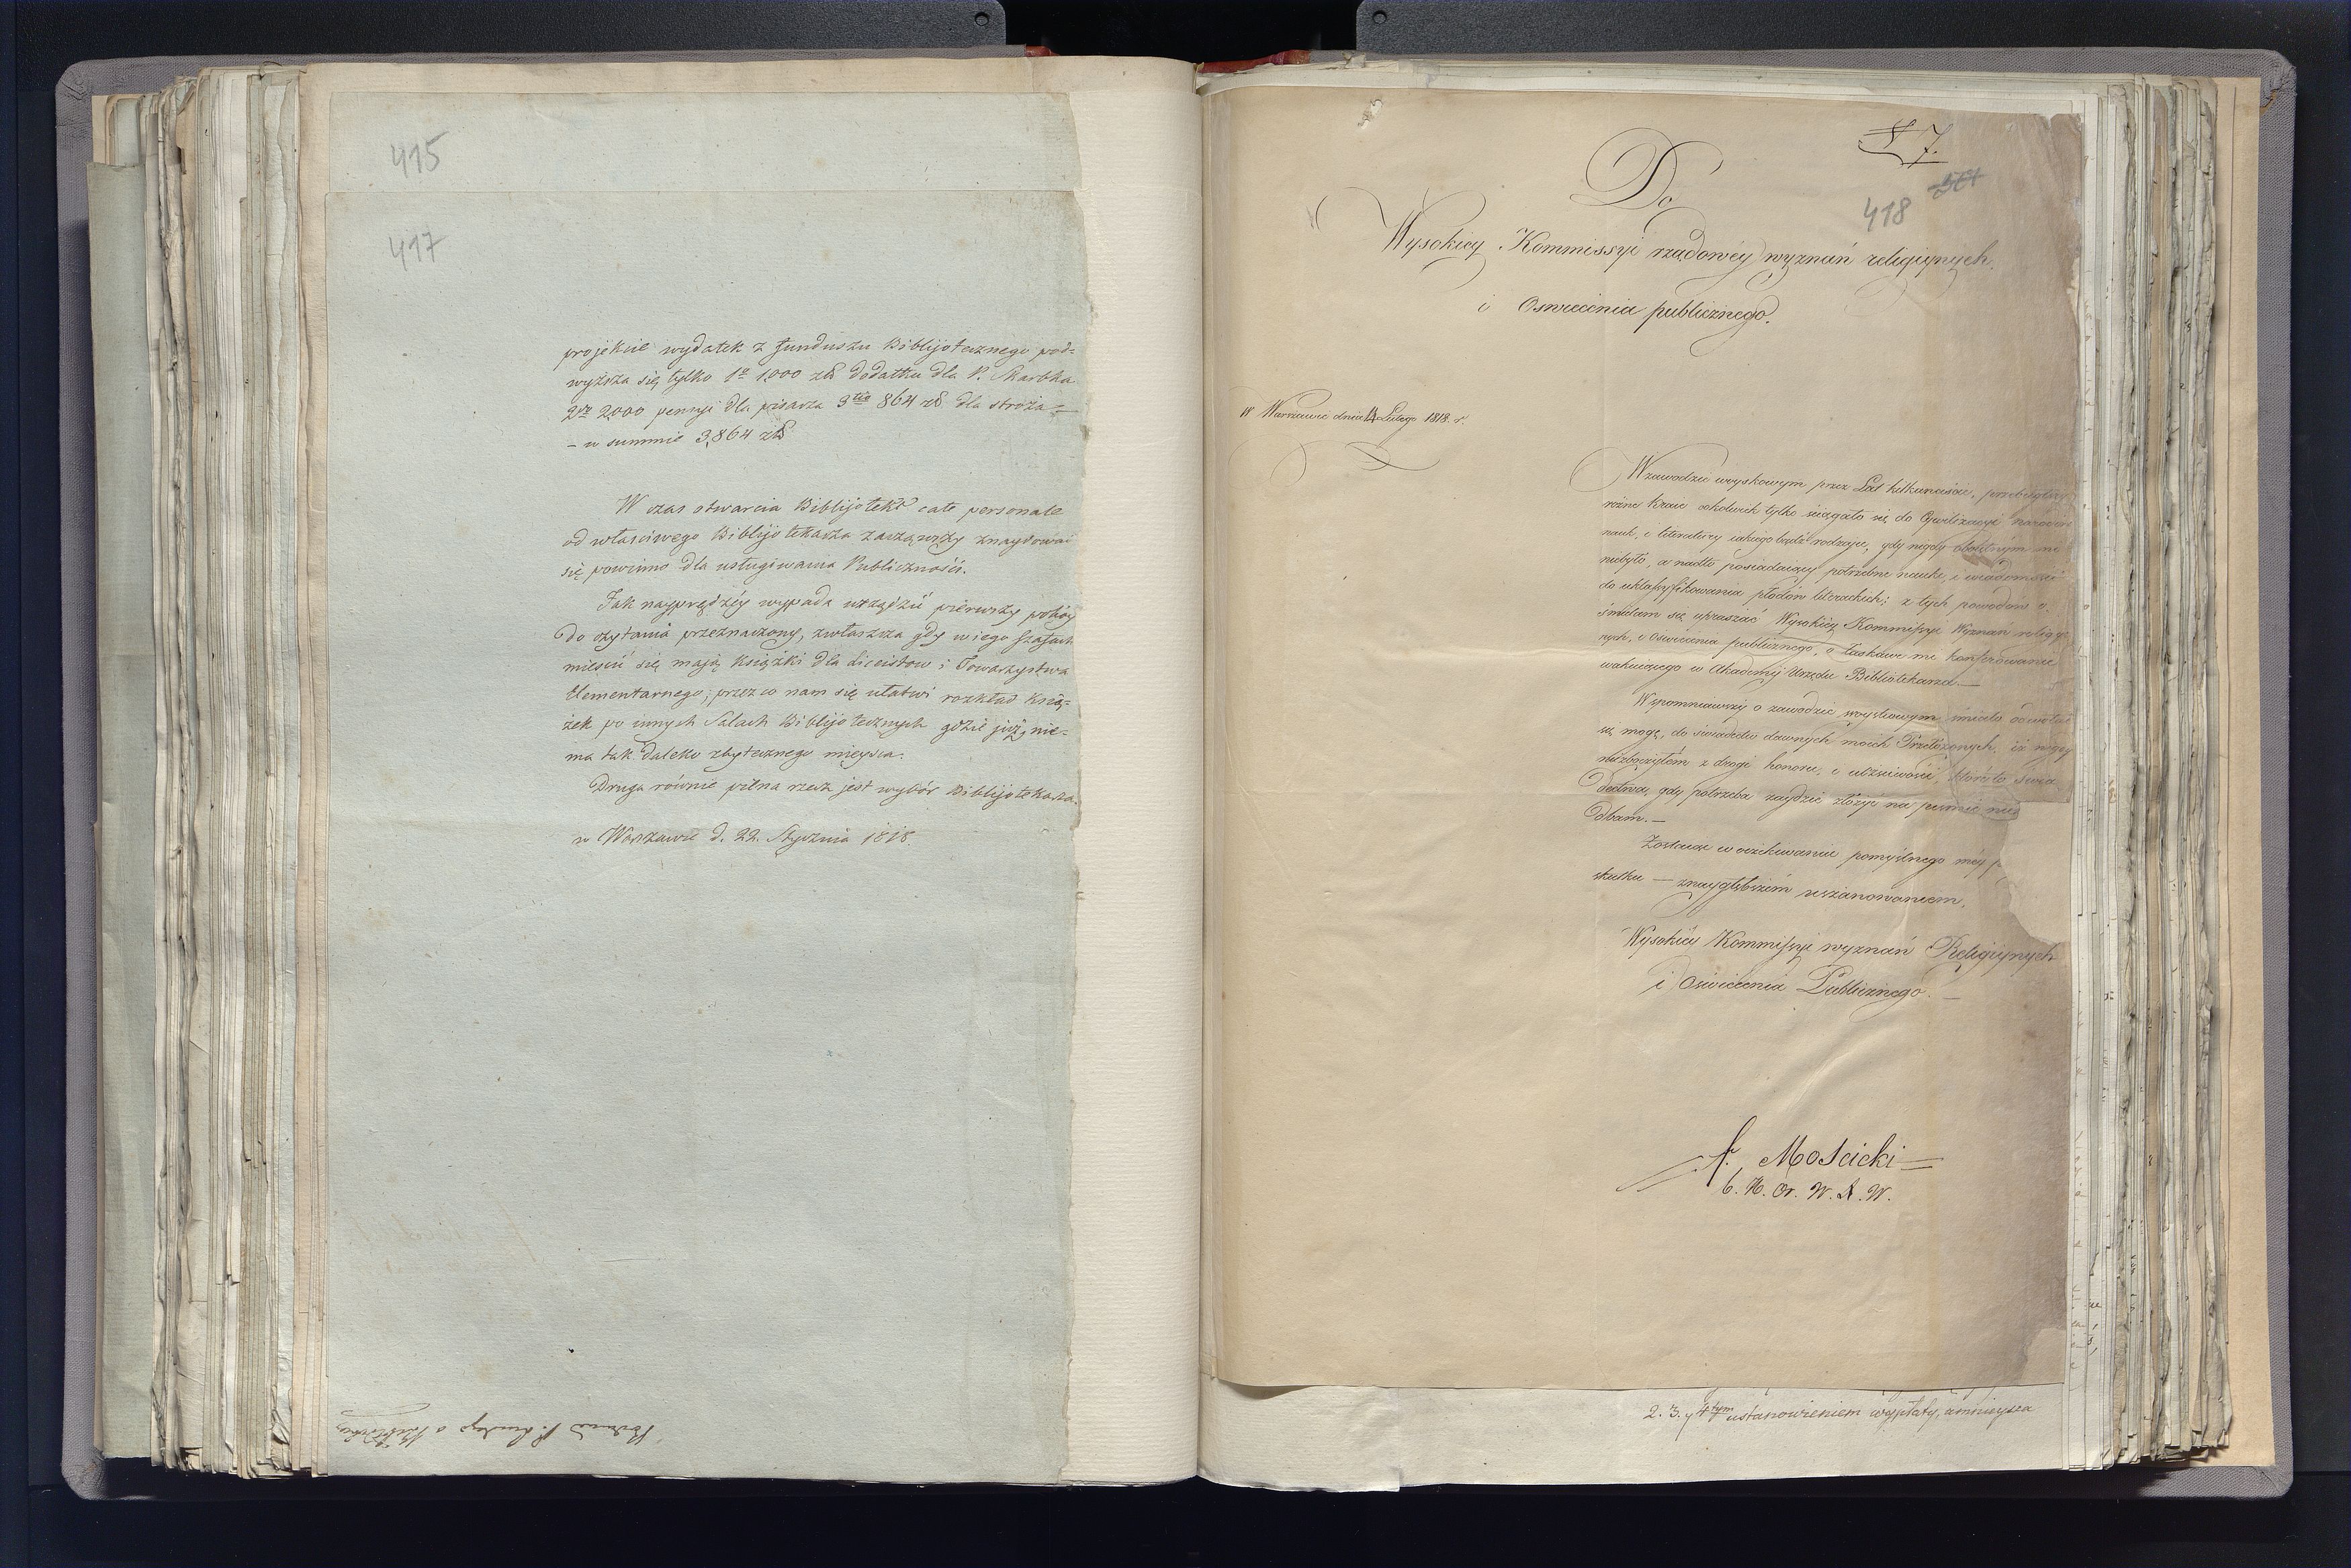 415
417
projekcie wydatek z funduszu Biblijotecznego pod=
wyższa się tylko 1º 1,000 zł dodatku dla P. Skarbka
2do 2,000 pensyi dla pisarza 3tio 864 zł dla stróża –
– w summie 3,864 zł
W czas otwarcia Biblijoteki całe personale
od właściwego Biblijotekarza zacząwszy znaydować
się powinno dla usługiwania Publiczności.
Jak nayprędzéy wypada urządzić pierwszy pokóy
do czytania przeznaczony, zwłaszcza gdy w iego szafach
mieścić się mają książki dla Liceistow i Towarzystwa
Elementarnego; przez co nam się ułatwi rozkład ksią=
żek po innych Salach Biblijotecznych gdzie już nie=
ma tak daleko zbytecznego mieysca.
Druga równie pilna rzecz jest wybór Biblijotekarza.
w Warszawie d. 22. Stycznia 1818.
7.
418
Do
Wysokiey Kommissyi rządowéy wyznań religiynych
i Oswiecenia publicznego.
W Warszawie dnia 14 Lutego 1818. r.
W zawodzie woyskowym przez Lat kilkanaście, przebiegłszy
różne Kraie cokolwiek tylko ściągało się do Cywilizacyi narodów
nauk, i literatury iakiegobądź rodzaju, gdy nigdy oboiętnym mi
niebyło, a nadto posiadaiący potrzebne nauki, i wiadomości
do uklassyfikowania płodów literackich; z tych powodów o=
śmielam się upraszać Wysokiey Kommissyi Wyznań religiy=
nych, i Oswiecenia publicznego, o łaskawe mi konferowanie
wakuiącego w Akademij Urzędu Bibliotekarza. —
Wspomniawszy o zawodzie woyskowym śmiało odwołać
się mogę, do świadectw dawnych moich Przełożonych, iż nigdy
niezboczyłem z drogi honoru, i uczciwości, któréto świa
dectwa, gdy potrzeba zaydzie złożyć na pewnie nie
dbam. —
Zostaię w oczekiwaniu pomyślnego méy p
skutku — z naygłębszém uszanowaniem,
Wysokiéy Kommissyi wyznań Religiynych
i Oświecenia Publicznego. —
Mościcki
2. 3. y 4tym ustanowieniem wypłaty, umnieysza